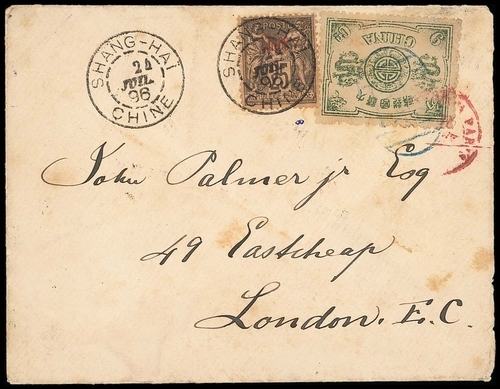 SHANG-HAI
24
JUIL
96
CHINE
SHANG-HAI
JUIL
96
CHINE
CHINA
John Palmer jr Esq
49 Eastcheap
London. E.C.